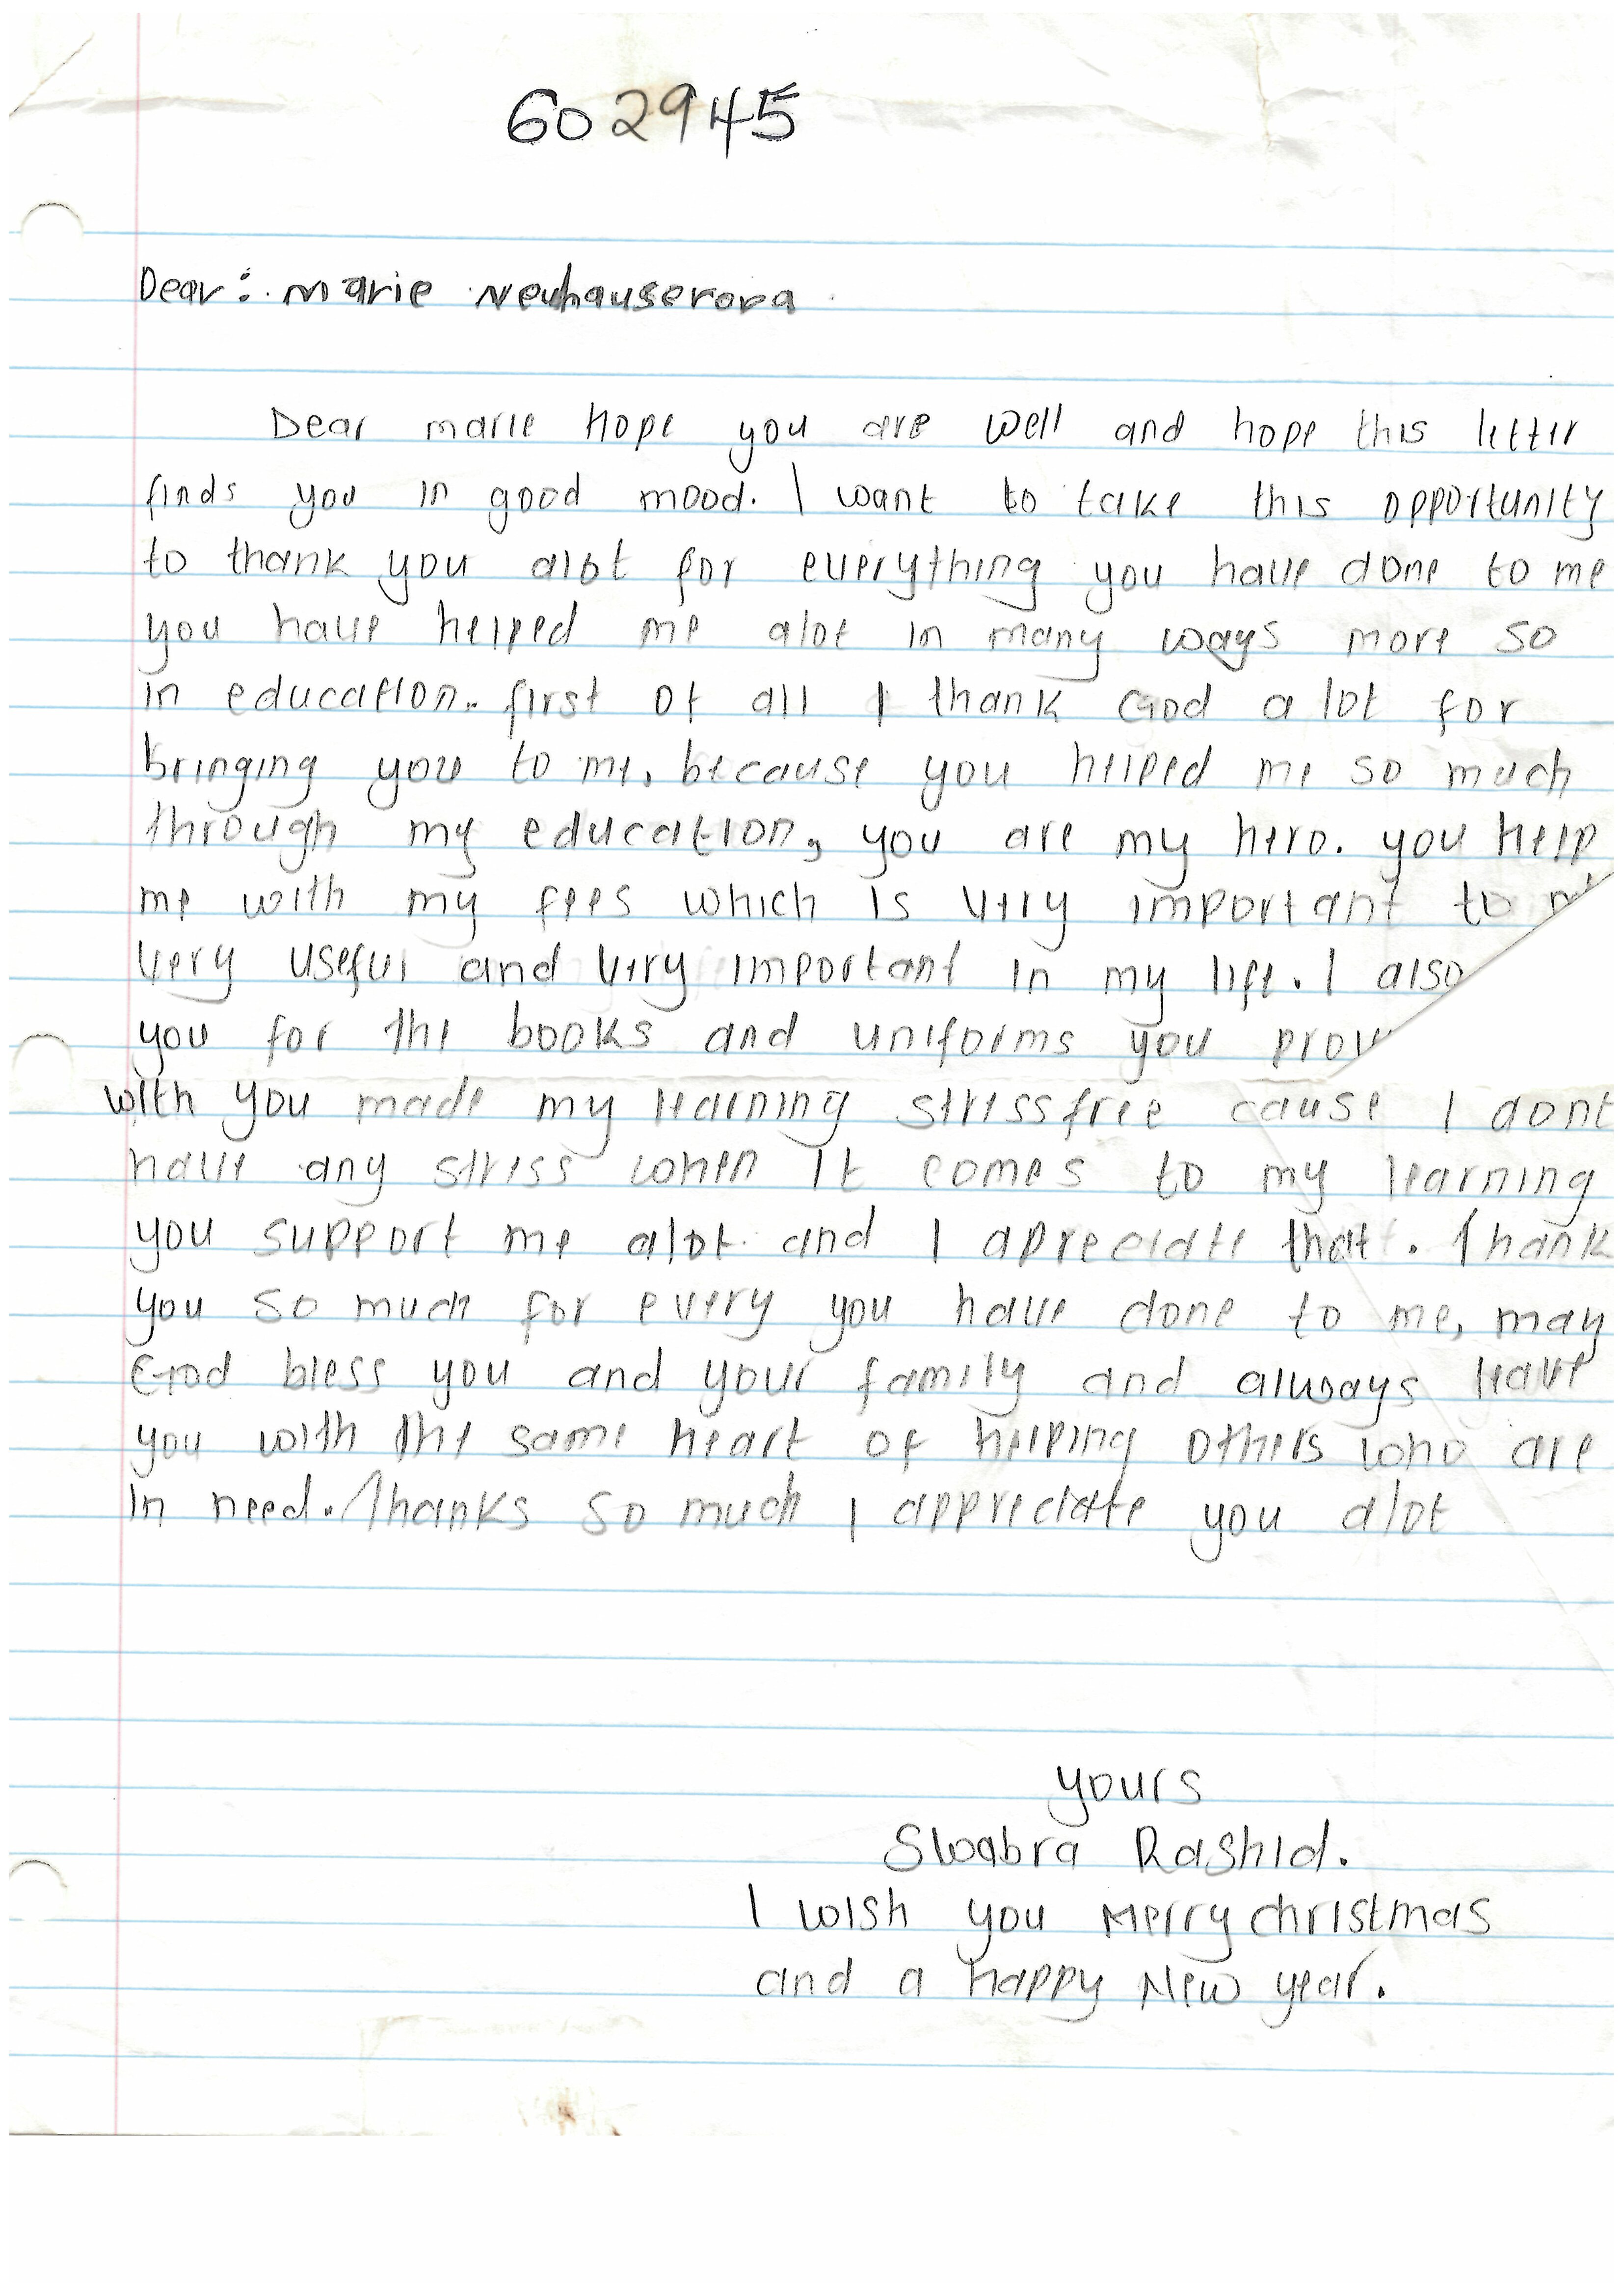 602945
Dear: Marie Neuhauserova
Dear marie Hope you are well and hope this letter
finds you in good mood. I want to take this opportunity
to thank you alot for everything you have done to me
you have helped me alot in many ways more so
in education. first of all I thank God a lot for
bringing you to me, because you helped me so much
through my education, you are my hero. you help
me with my fees which is very important to
very useful and very important in my life. I also
you for the books and uniforms you
with you made my learning stressfree cause I dont
have any stress when it comes to my learning
you support me alot and I apreciate that. Thank
you so much for every you have done to me, may
God bless you and your family and always leave
you with the same heart of helping others who are
in need. Thanks so much I appreciate you alot
yours
Swabra Rashid.
I wish you Merry christmas
and a happy New year.